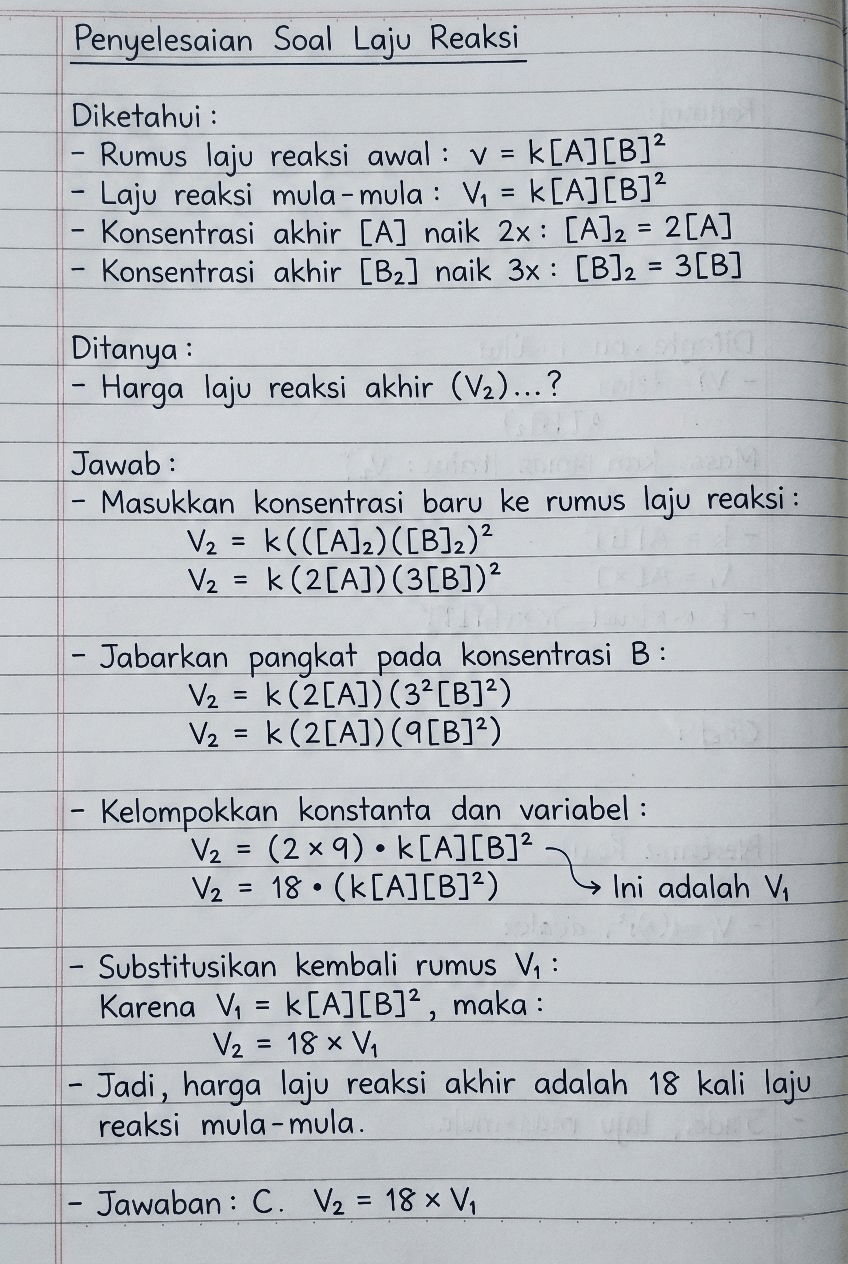 Penyelesaian Soal Laju Reaksi
Diketahui :
- Rumus laju reaksi awal : v = k[A][B]²
- Laju reaksi mula-mula : V₁ = k[A][B]²
- Konsentrasi akhir [A] naik 2x : [A]₂ = 2[A]
- Konsentrasi akhir [B₂] naik 3x : [B]₂ = 3[B]
Ditanya :
- Harga laju reaksi akhir (V₂)...?
Jawab :
- Masukkan konsentrasi baru ke rumus laju reaksi :
V₂ = k(([A]₂)([B]₂)²
V₂ = k(2[A])(3[B])²
- Jabarkan pangkat pada konsentrasi B :
V₂ = k(2[A])(3²[B]²)
V₂ = k(2[A])(9[B]²)
- Kelompokkan konstanta dan variabel :
V₂ = (2 × 9) • k[A][B]²
V₂ = 18 • (k[A][B]²) → Ini adalah V₁
- Substitusikan kembali rumus V₁ :
Karena V₁ = k[A][B]², maka :
V₂ = 18 × V₁
- Jadi, harga laju reaksi akhir adalah 18 kali laju
reaksi mula-mula.
- Jawaban : C. V₂ = 18 × V₁